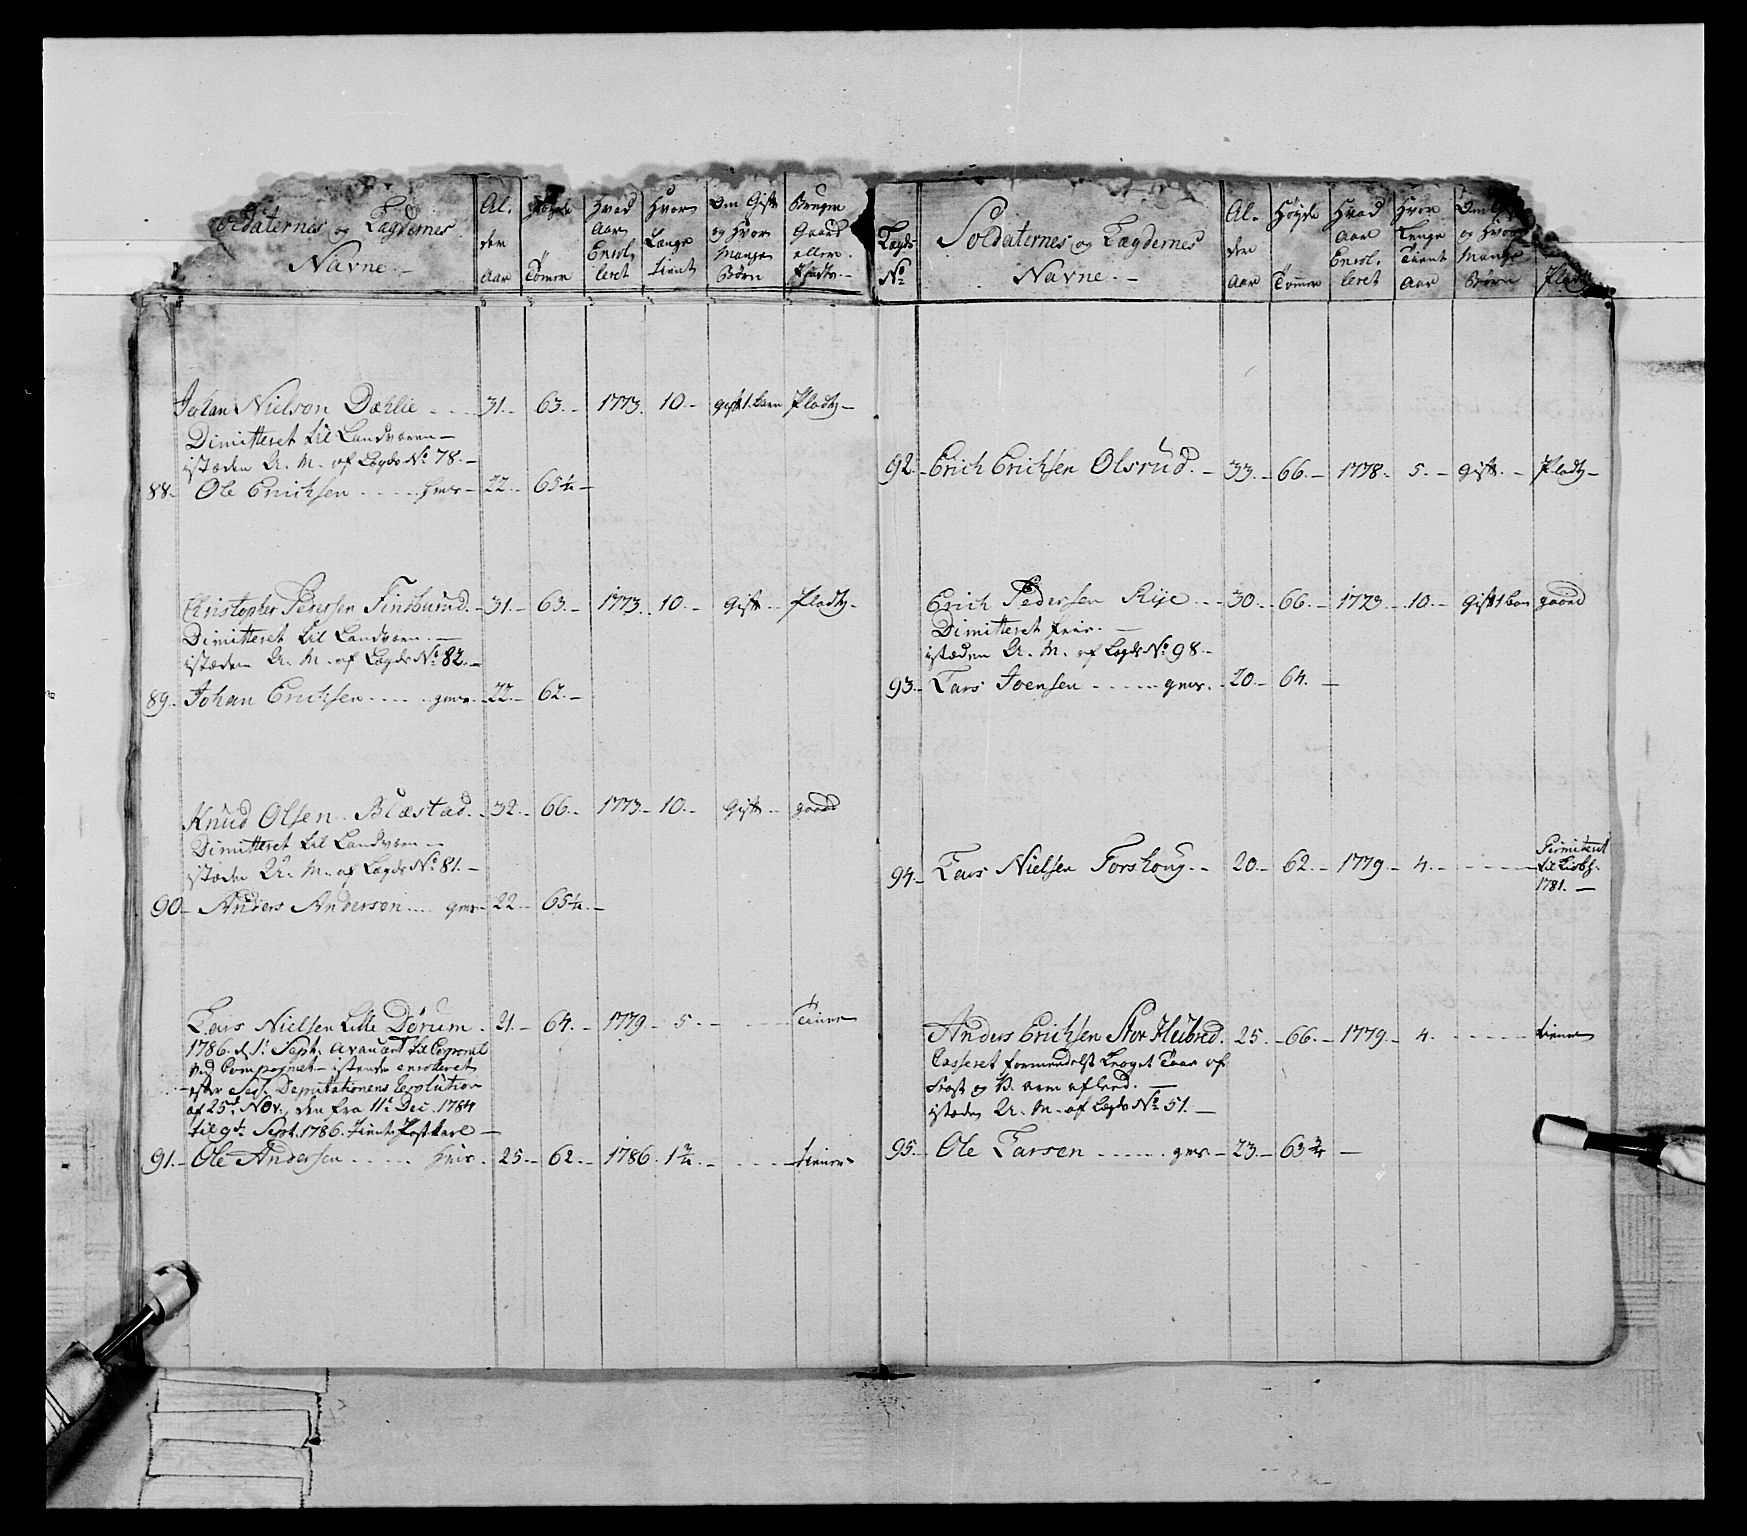 Soldaternes og Lægdernes
Navne.
Al.
der
Aar
Høyde
Tomer
Hvad
Aar
Enrol-
leret
Hvor
Længe
tient
Om Gift
og Hvor
Mange
Børn
Bruger
Gaard
eller
Plads.
Johan Nielsøn Dæhlie 31. 63. 1773. 10. gift 1. barn Pladtz
Dimitteret til Landværn
istæden U. M. af Lægds No 78.
88. Ole Erichsen 22. 65 1/4
Christopher Pedersen Finsburud. 31. 63. 1773. 10. Gift Pladtz
Dimitteret til Landværn.
istæden U. M. af Lægds No 82.
89. Johan Erichsen gevr. 22. 62.
Knud Olsen Blæstad. 32. 66. 1773. 10. Gift gaard
Dimitteret til Landværn
istæden U. M. af Lægds No 81.
90. Anders Andersøn gevr. 22. 65 1/4
Lars Nielsen Lille Dørum. 21. 64. 1779. 5. tiener
1786 d. 1t Sept. avancert til Corporal
ved Compagniet istæden enrolleret
efter Sess. Deputationens Resolution
af 25de Nov., den fra 11t Dec. 1784
til 9de Sept. 1786. tient
91. Ole Andersen 25. 62. 1786. 1 3/4. tiener
Lægds
No
Soldaternes og Lægdernes
Navne.
Al.
der
Aar
Høyde
Tommer
Hvad
Aar
Enrol-
leret
Hvor
Længe
Tient
Aar
Om
og Hvor
Mange
Børn
Pladtz
92. Erich Erichsen Olsrud. 33. 66. 1778. 5. gift. Pladtz
Erich Pedersen Rije 30. 66. 1773. 10. Gift 1 barn gaard
Dimitteret
istæden U. M. af Lægds No 98.
93. Lars Joensen gevr. 20. 64.
94. Lars Nielsen Torshoug. 20. 62. 1779. 4.
Permiteret
til
1781.
Anders Erichsen Stor Heibred. 25. 66. 1779. 4. tiener
Casseret formedelst af
Frost og
istæden U. M. af Lægds No 51.
95. Ole Larsen gevr. 23. 63 3/4